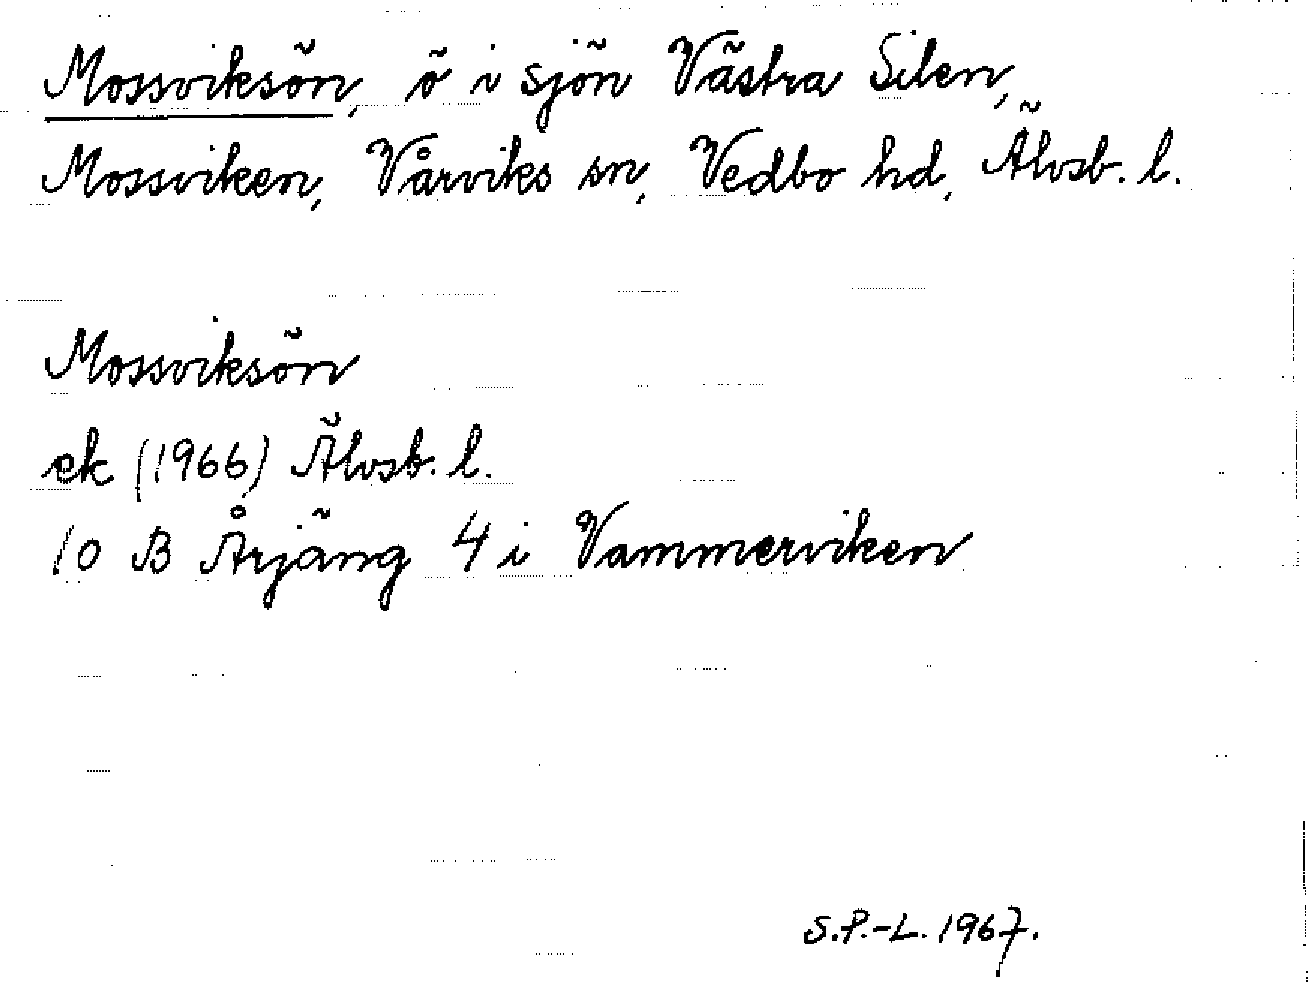 Mossviksön, ö i sjön Västra Silen,
Mossviken, Vårviks sn, Vedbo hd, Älvsb. l.
Mossviksön
ek (1966) Älvsb. l.
10 B Årjäng 4 i Vammerviken
S.P.-L. 1967.